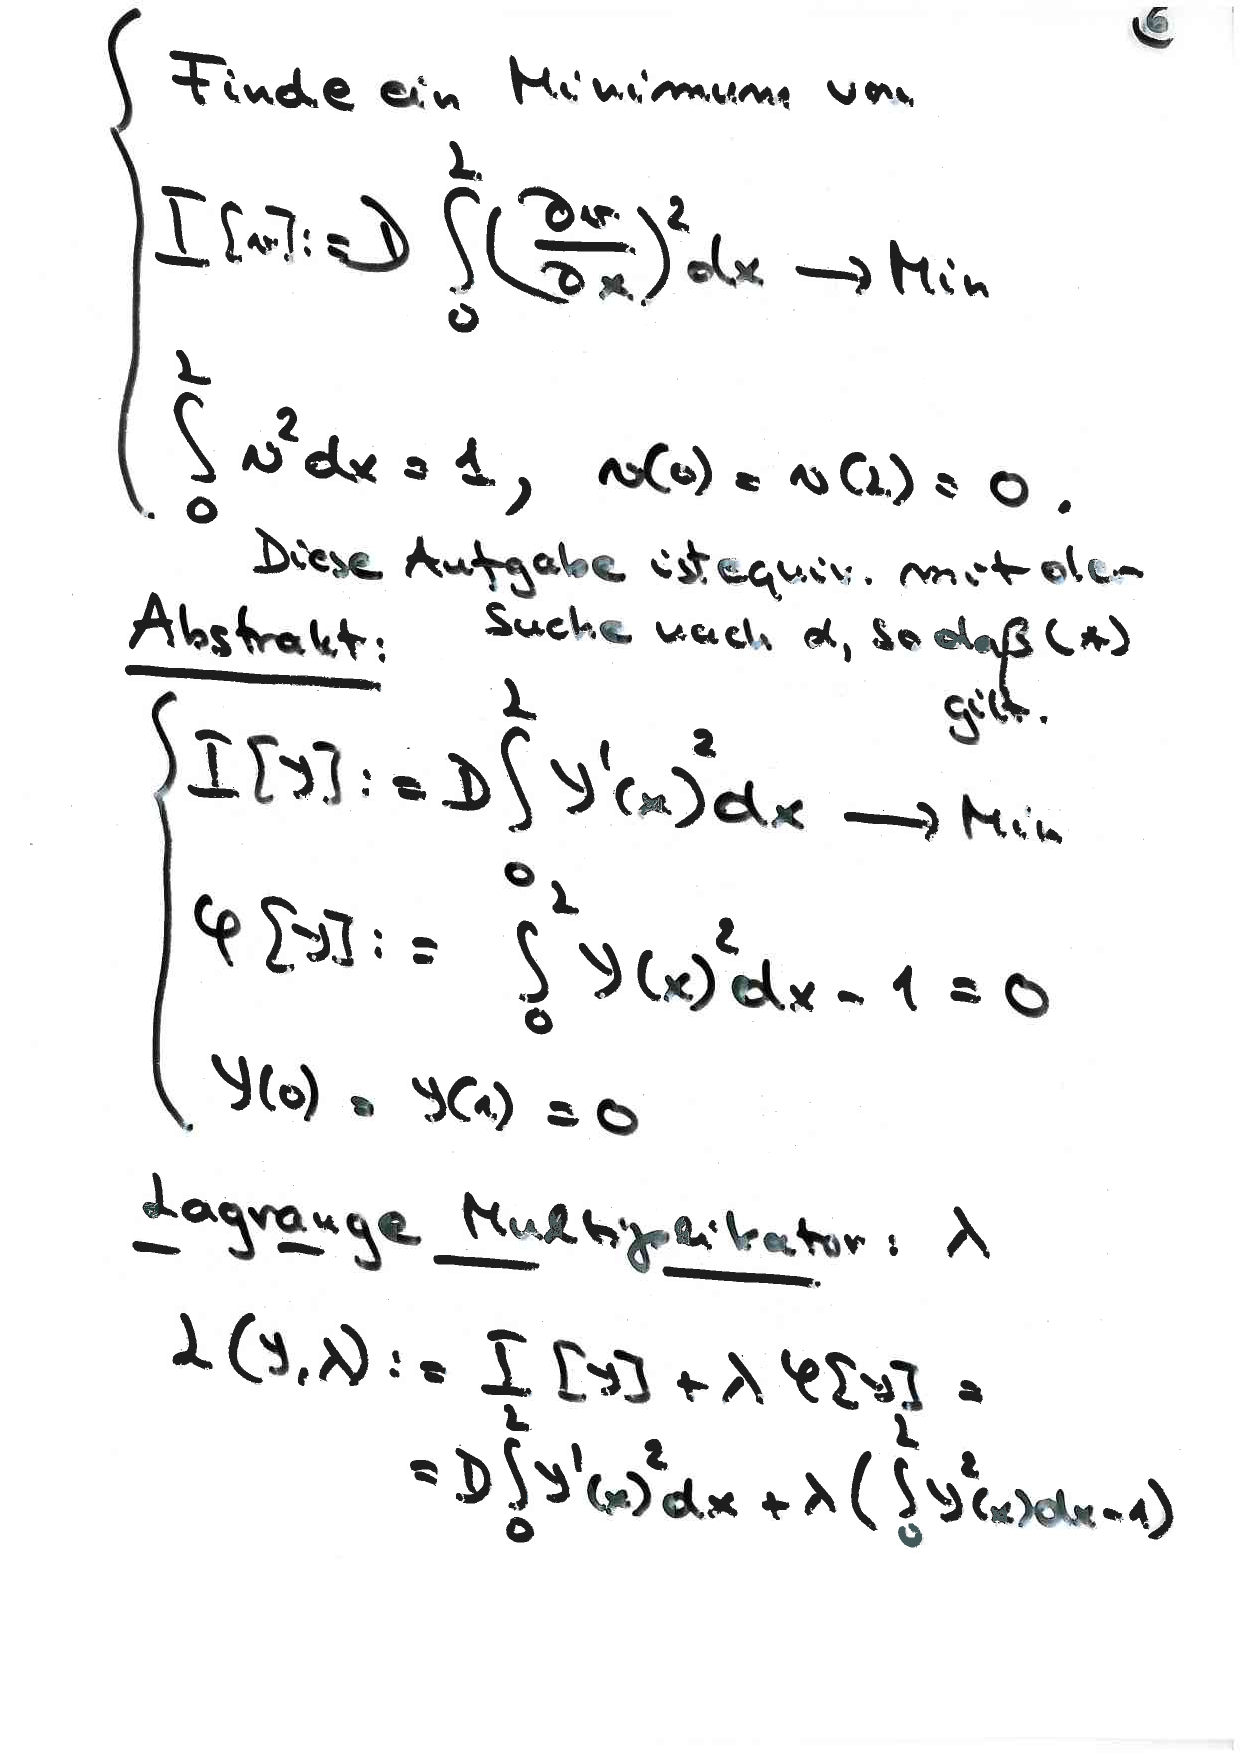 6
Finde ein Minimum von
I[v] := D ∫₀ᴸ (∂v/∂x)² dx → Min
∫₀ᴸ v² dx = 1, v(0) = v(L) = 0.
Diese Aufgabe ist equiv. mit der
Abstrakt: Suche nach α, so daß (*)
gilt.
I[y] := D ∫₀ᴸ y'(x)² dx → Min
φ[y] := ∫₀ᴸ y(x)² dx - 1 = 0
y(0) = y(1) = 0
Lagrange Multiplikator: λ
L(y,λ) := I[y] + λ φ[y] =
= D ∫₀ᴸ y'(x)² dx + λ ( ∫₀ᴸ y²(x) dx - 1)